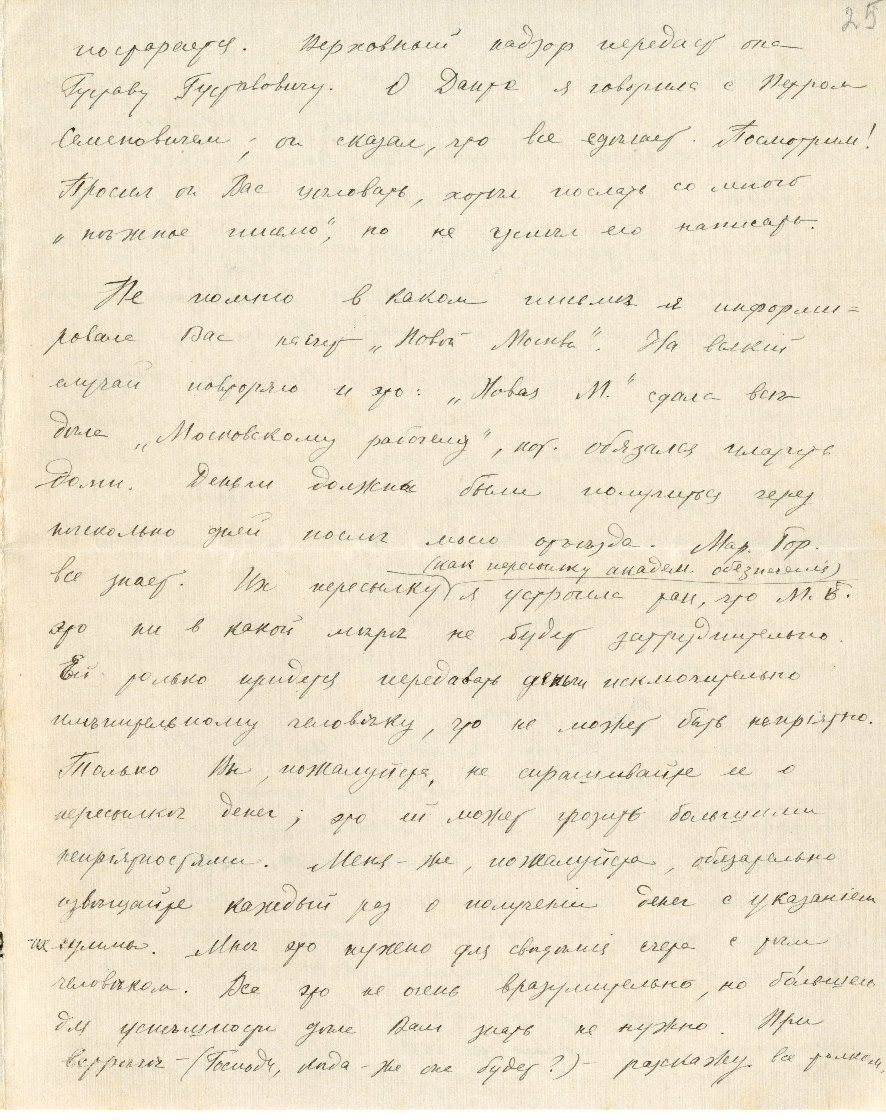 25
постарается. Верховный надзор передаст она
Густаву Густавовичу. О Данте я говорила с Петром
Семеновичем; он сказал, что все сделает. Посмотрим!
Просил он Вас цѣловать, хотѣл послать со мною
„нѣжное письмо", но не успѣл его написать.
Не помню в каком письмѣ я информи=
ровала Вас насчет „Новой Москвы". На всякий
случай повторяю и это: „Новая М." сдала всѣ
дѣла „Московскому рабочему", кот. обязался платить
долги. Деньги должны были получиться через
нѣсколько дней послѣ моего отъѣзда. Мар. Гор.
(как пересылку академ. обезпеченія)
все знает. Их пересылку я устроила так, что М. Б.
это ни в какой мѣрѣ не будет затруднительно.
Ей только придется передавать деньги исключительно
человѣчку, что не может быть непріятно.
Только Вы, пожалуйста, не спрашивайте ее о
пересылкѣ денег; это ей может грозить большими
непріятностями. Меня-же, пожалуйста, обязательно
извѣщайте каждый раз о полученіи денег с указаніем
суммы. Мнѣ это нужно для сведенія счета с тѣм
человѣчком. Все это не очень вразумительно, но бо́льшего
для успѣшности дѣла Вам знать не нужно. При
встрѣчѣ - (Господи, когда-же она будет?) - разскажу все